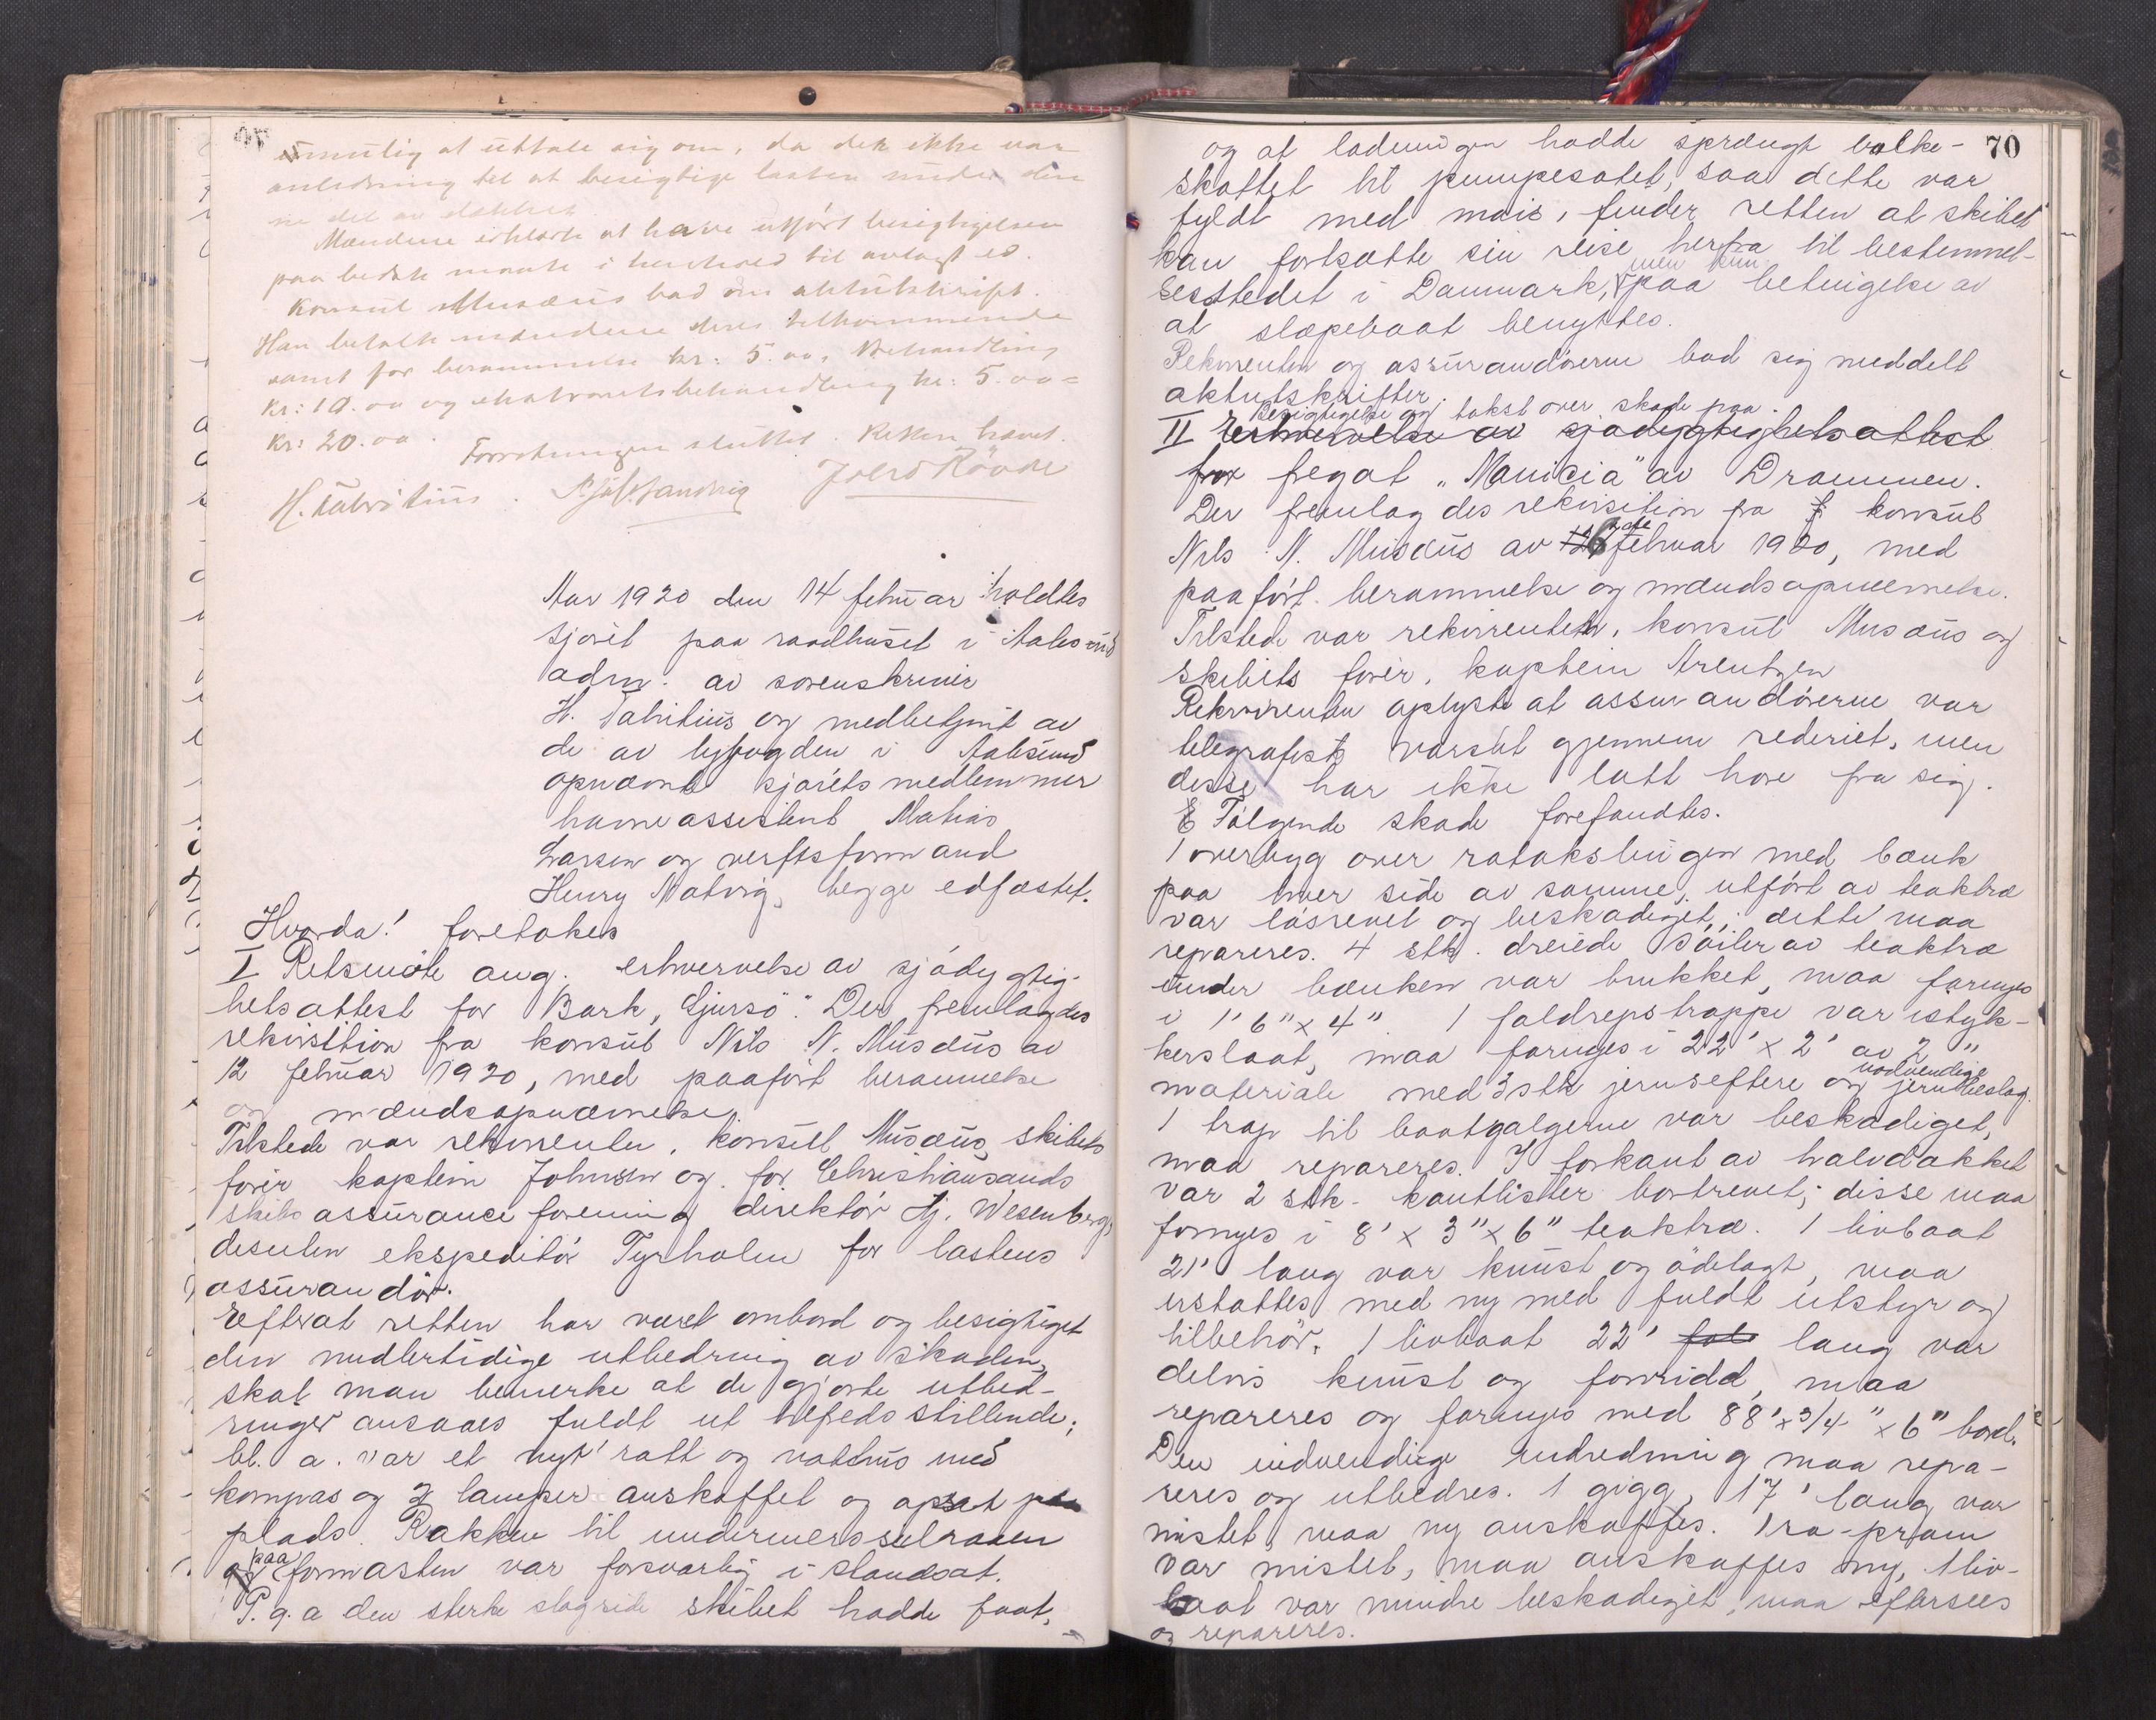 umulig at uttale sig om, da der ikke var
anledning til at besigtige lasten under den
ne del av dækket.
Mændene erklærte at have utført besigtigelsen
paa bedste maate i henhold til avlagt ed.
Konsul Musæus bad om aktutskrift.
Han betalte mændene deres tilkommende
samt for berammelse kr: 5.00, Behandling
kr: 10.00 og ekstraretsbehandling kr: 5.00 =
kr: 20.00.
Forretningen sluttet. Retten hævet.
H. Fabritius.
Aar 1920 den 14 februar holdtes
sjøret paa raadhuset i Aalesund
adm. av sorenskriver
H. Fabritius og medbetjent av
de av byfogden i Aalesund
opnævnte sjørets medlemmer
havneassistent Mathias
Larsen og verftsformand
Henry Natvig, begge edfæstet.
Hvorda! foretokes
I Retsmøte ang. erhvervelse av sjødygtig-
hetsattest for Bark „Gjersø". Der fremlagdes
rekvisition fra konsul Nils N. Musæus av
12 februar 1920, med paaført berammelse
og mændsopnævnelse
Tilstede var rekvirenten, konsul Musæus, skibets
fører kaptein Johnsen og for Christiansands
skibsassuranceforening direktør Hj. Wesenberg,
desuten ekspeditør Tyrholm for lastens
assurandør.
Efterat retten har været ombord og besigtiget
den midlertidige utbedring av skaden,
skal man bemerke at de gjorte utbed-
ringer ansaaes fuldt ut tilfredsstillende;
bl. a. var et nyt ratt og natthus med
kompas og 2 lamper anskaffet og opsat paa
plads. Rakken til undermersseilraaen
paa
og formasten var forsvarlig istandsat.
P. g. a den sterke slagside skibet hadde faat,
70
og at ladningen hadde sprængt bolke-
skottet til pumpesotet, saa dette var
fyldt med mais, finder retten at skibet
kan fortsætte sin reise herfra til bestemmel-
men kun
sesstedet i Danmark, paa betingelse av
at slæpebaat benyttes.
Rekvirenten og assurandørerne bad sig meddelt
aktutskrifter.
Besigtigelse og takst over skade paa
II Erhvervelse av sjødygtighetsattest
for fregat „Manicia" av Drammen.
Der fremlagdes rekvisition fra konsul
Nils N. Musæus av februar 1920, med
paaført berammelse og mændsopnævnelse.
Tilstede var rekvirenten, konsul Musæus og
skibets fører, kaptein Arentzen
Rekvirenten oplyste at assurandørerne var
telegrafisk varslet gjennem rederiet, men
disse har ikke latt høre fra sig.
Følgende skade forefandtes.
1 overbyg over ratakslingen med bænk
paa hver side av samme, utført av teaktræ
var løsrevet og beskadiget; dette maa
repareres. 4 stk. dreiede søiler av teaktræ
under bænken var brukket, maa fornyes
i 1' 6" x 4". 1 faldrepstrappe var istyk-
kerslaat, maa fornyes i 22' x 2' av 2"
nødvendige
materiale med 3 stk jernseftere og jernbeslag.
1 trap til baatgalgerne var beskadiget,
maa repareres. I forkant av halvdækket
var 2 stk. kantlister bortrevet; disse maa
fornyes i 8' x 3" x 6" teaktræ. 1 livbaat
21' lang var knust og ødelagt, maa
erstattes med ny med fuldt utstyr og
tilbehør. 1 livbaat 22' fot lang var
delvis knust og forvridd, maa
repareres og fornyes med 88' x 3/4" x 6" bord.
Den indvendige indredning maa repa-
reres og utbedres. 1 gigg, 17' lang var
mistet, maa ny anskaffes. 1 ro-pram
var mistet, maa anskaffes ny, 1 liv-
baat var mindre beskadiget, maa eftersees
og repareres.